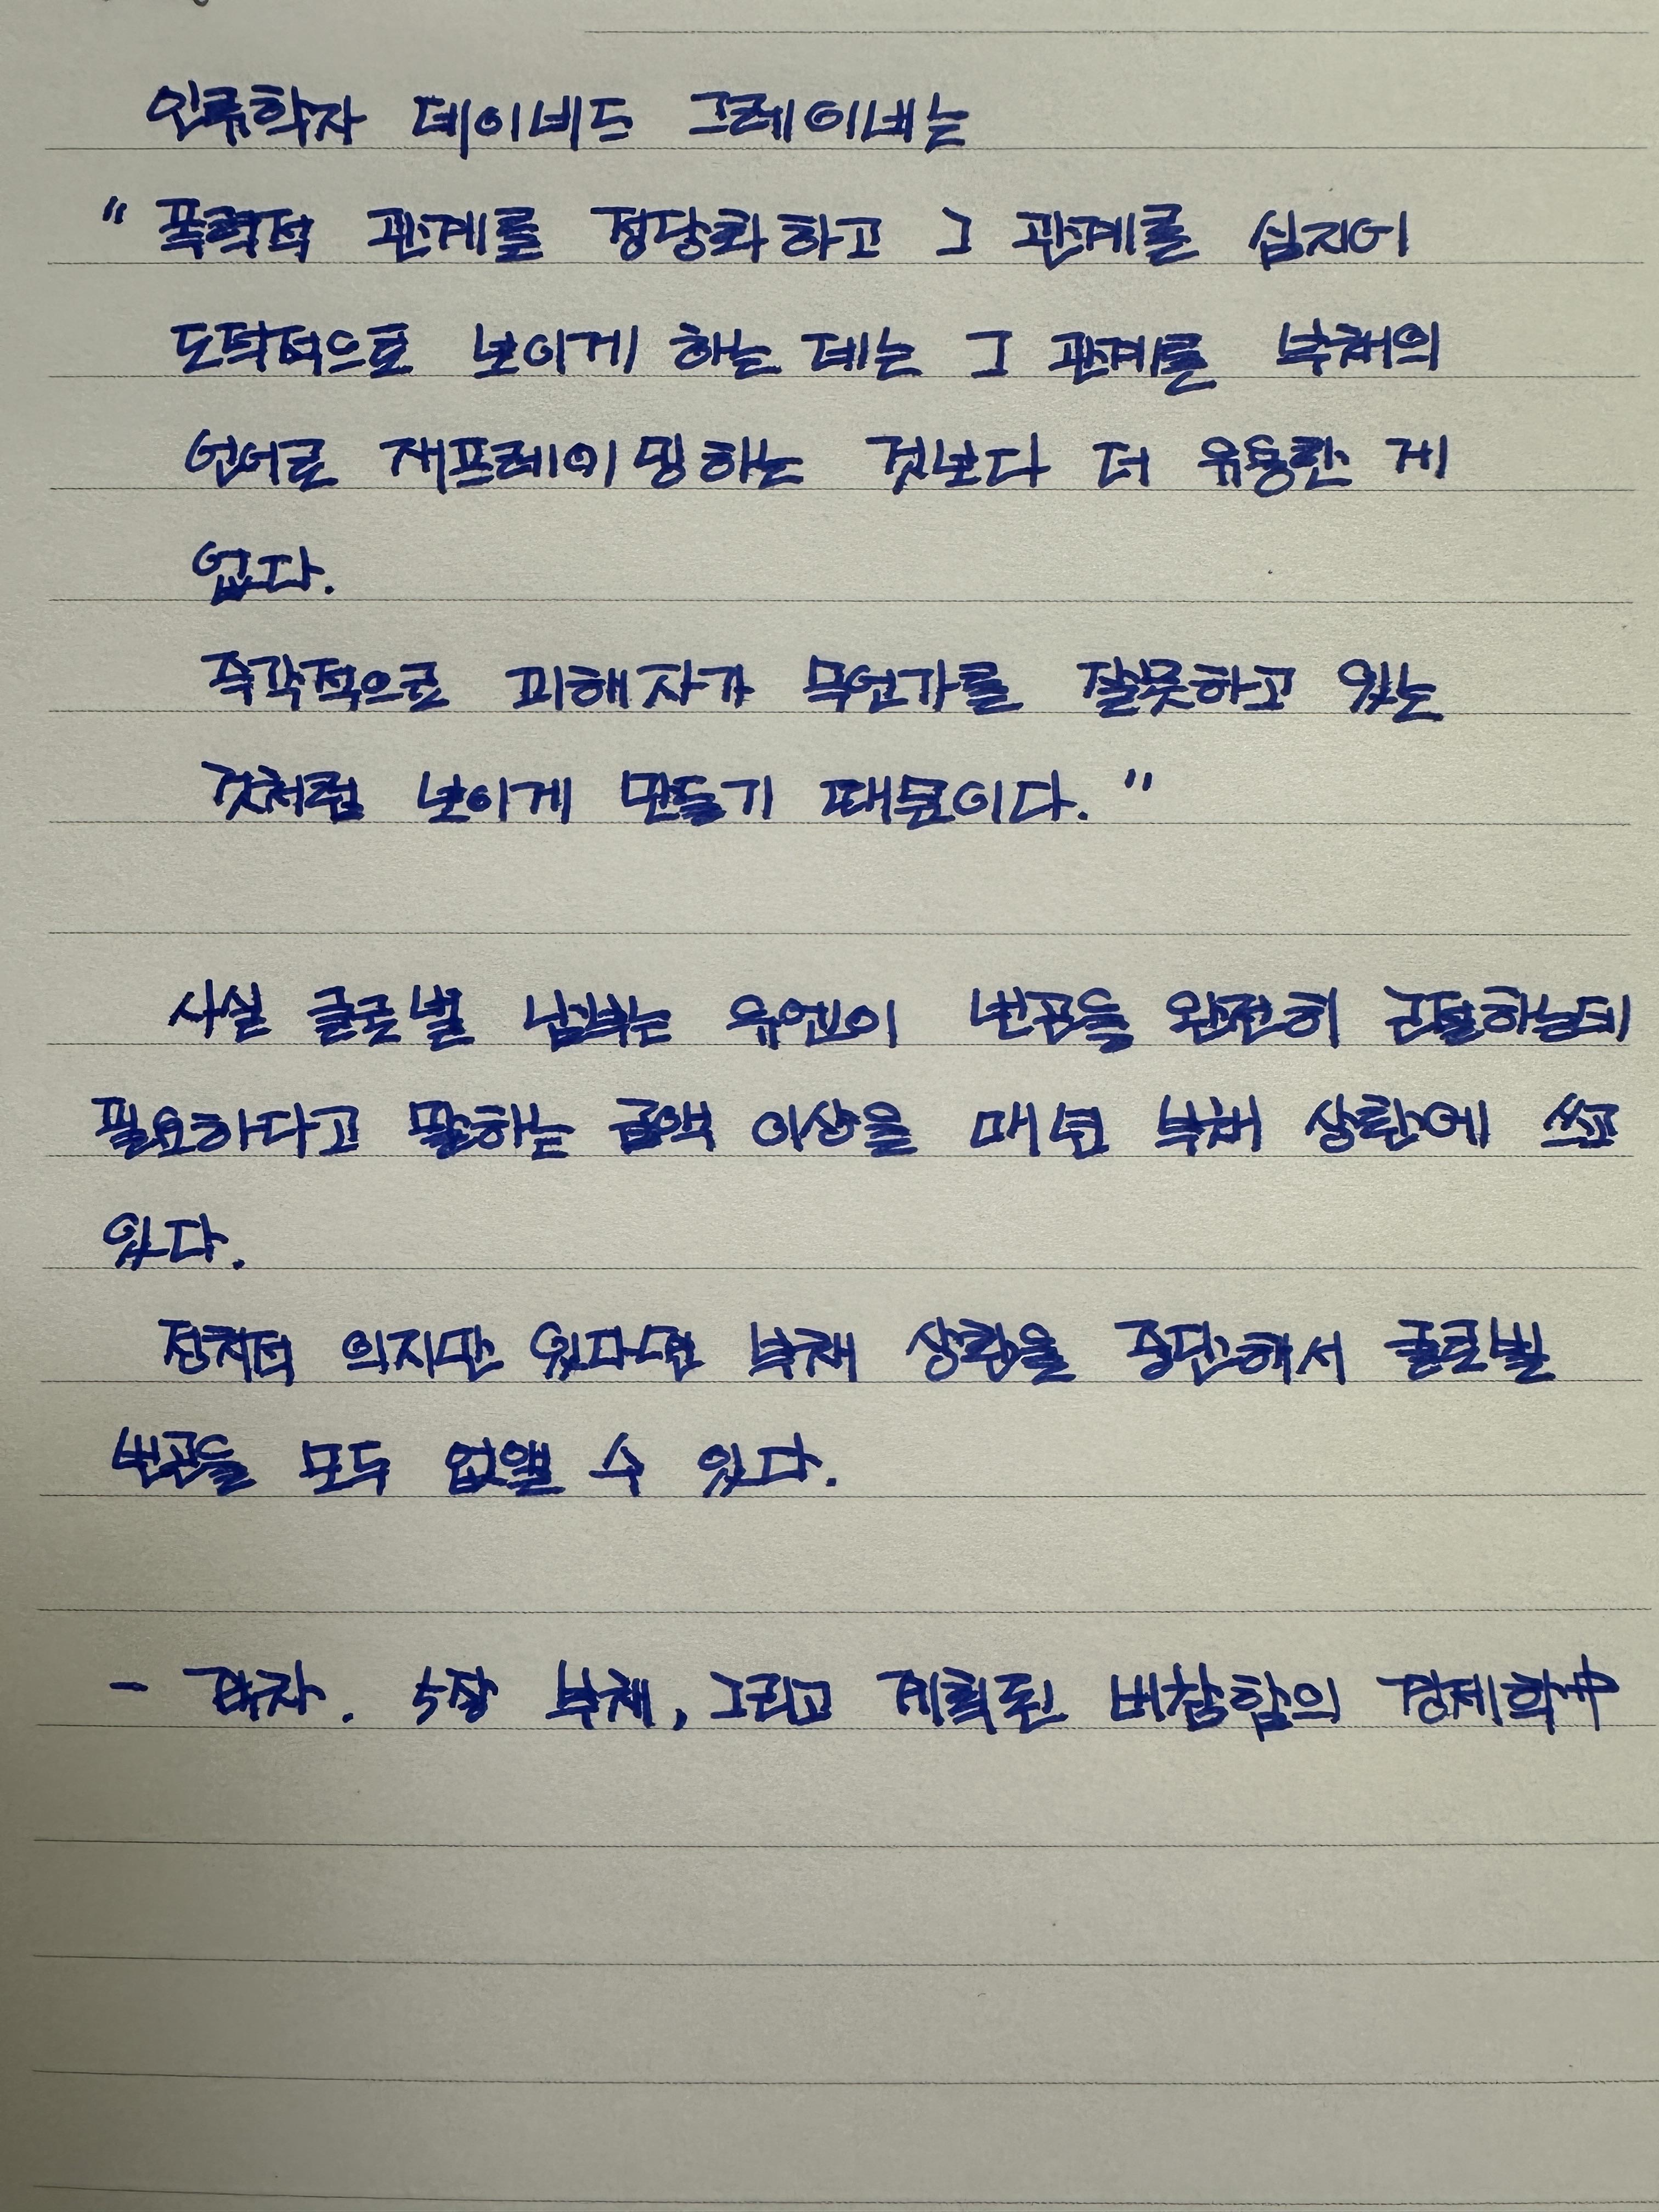 인류학자 데이비드 그레이버는
" 폭력적 관계를 정당화하고 그 관계를 심지어
도덕적으로 보이게 하는 데는 그 관계를 부채의
언어로 재프레이밍하는 것보다 더 유용한 게
없다.
즉각적으로 피해자가 무언가를 잘못하고 있는
것처럼 보이게 만들기 때문이다. "
사실 글로벌 남부는 유엔이 빈곤을 완전히 근절하는데
필요하다고 말하는 금액 이상을 매년 부채 상환에 쓰고
있다.
정치적 의지만 있다면 부채 상환을 중단해서 글로벌
빈곤을 모두 없앨 수 있다.
- 격차. 5장 부채, 그리고 계획된 비참함의 경제학 中